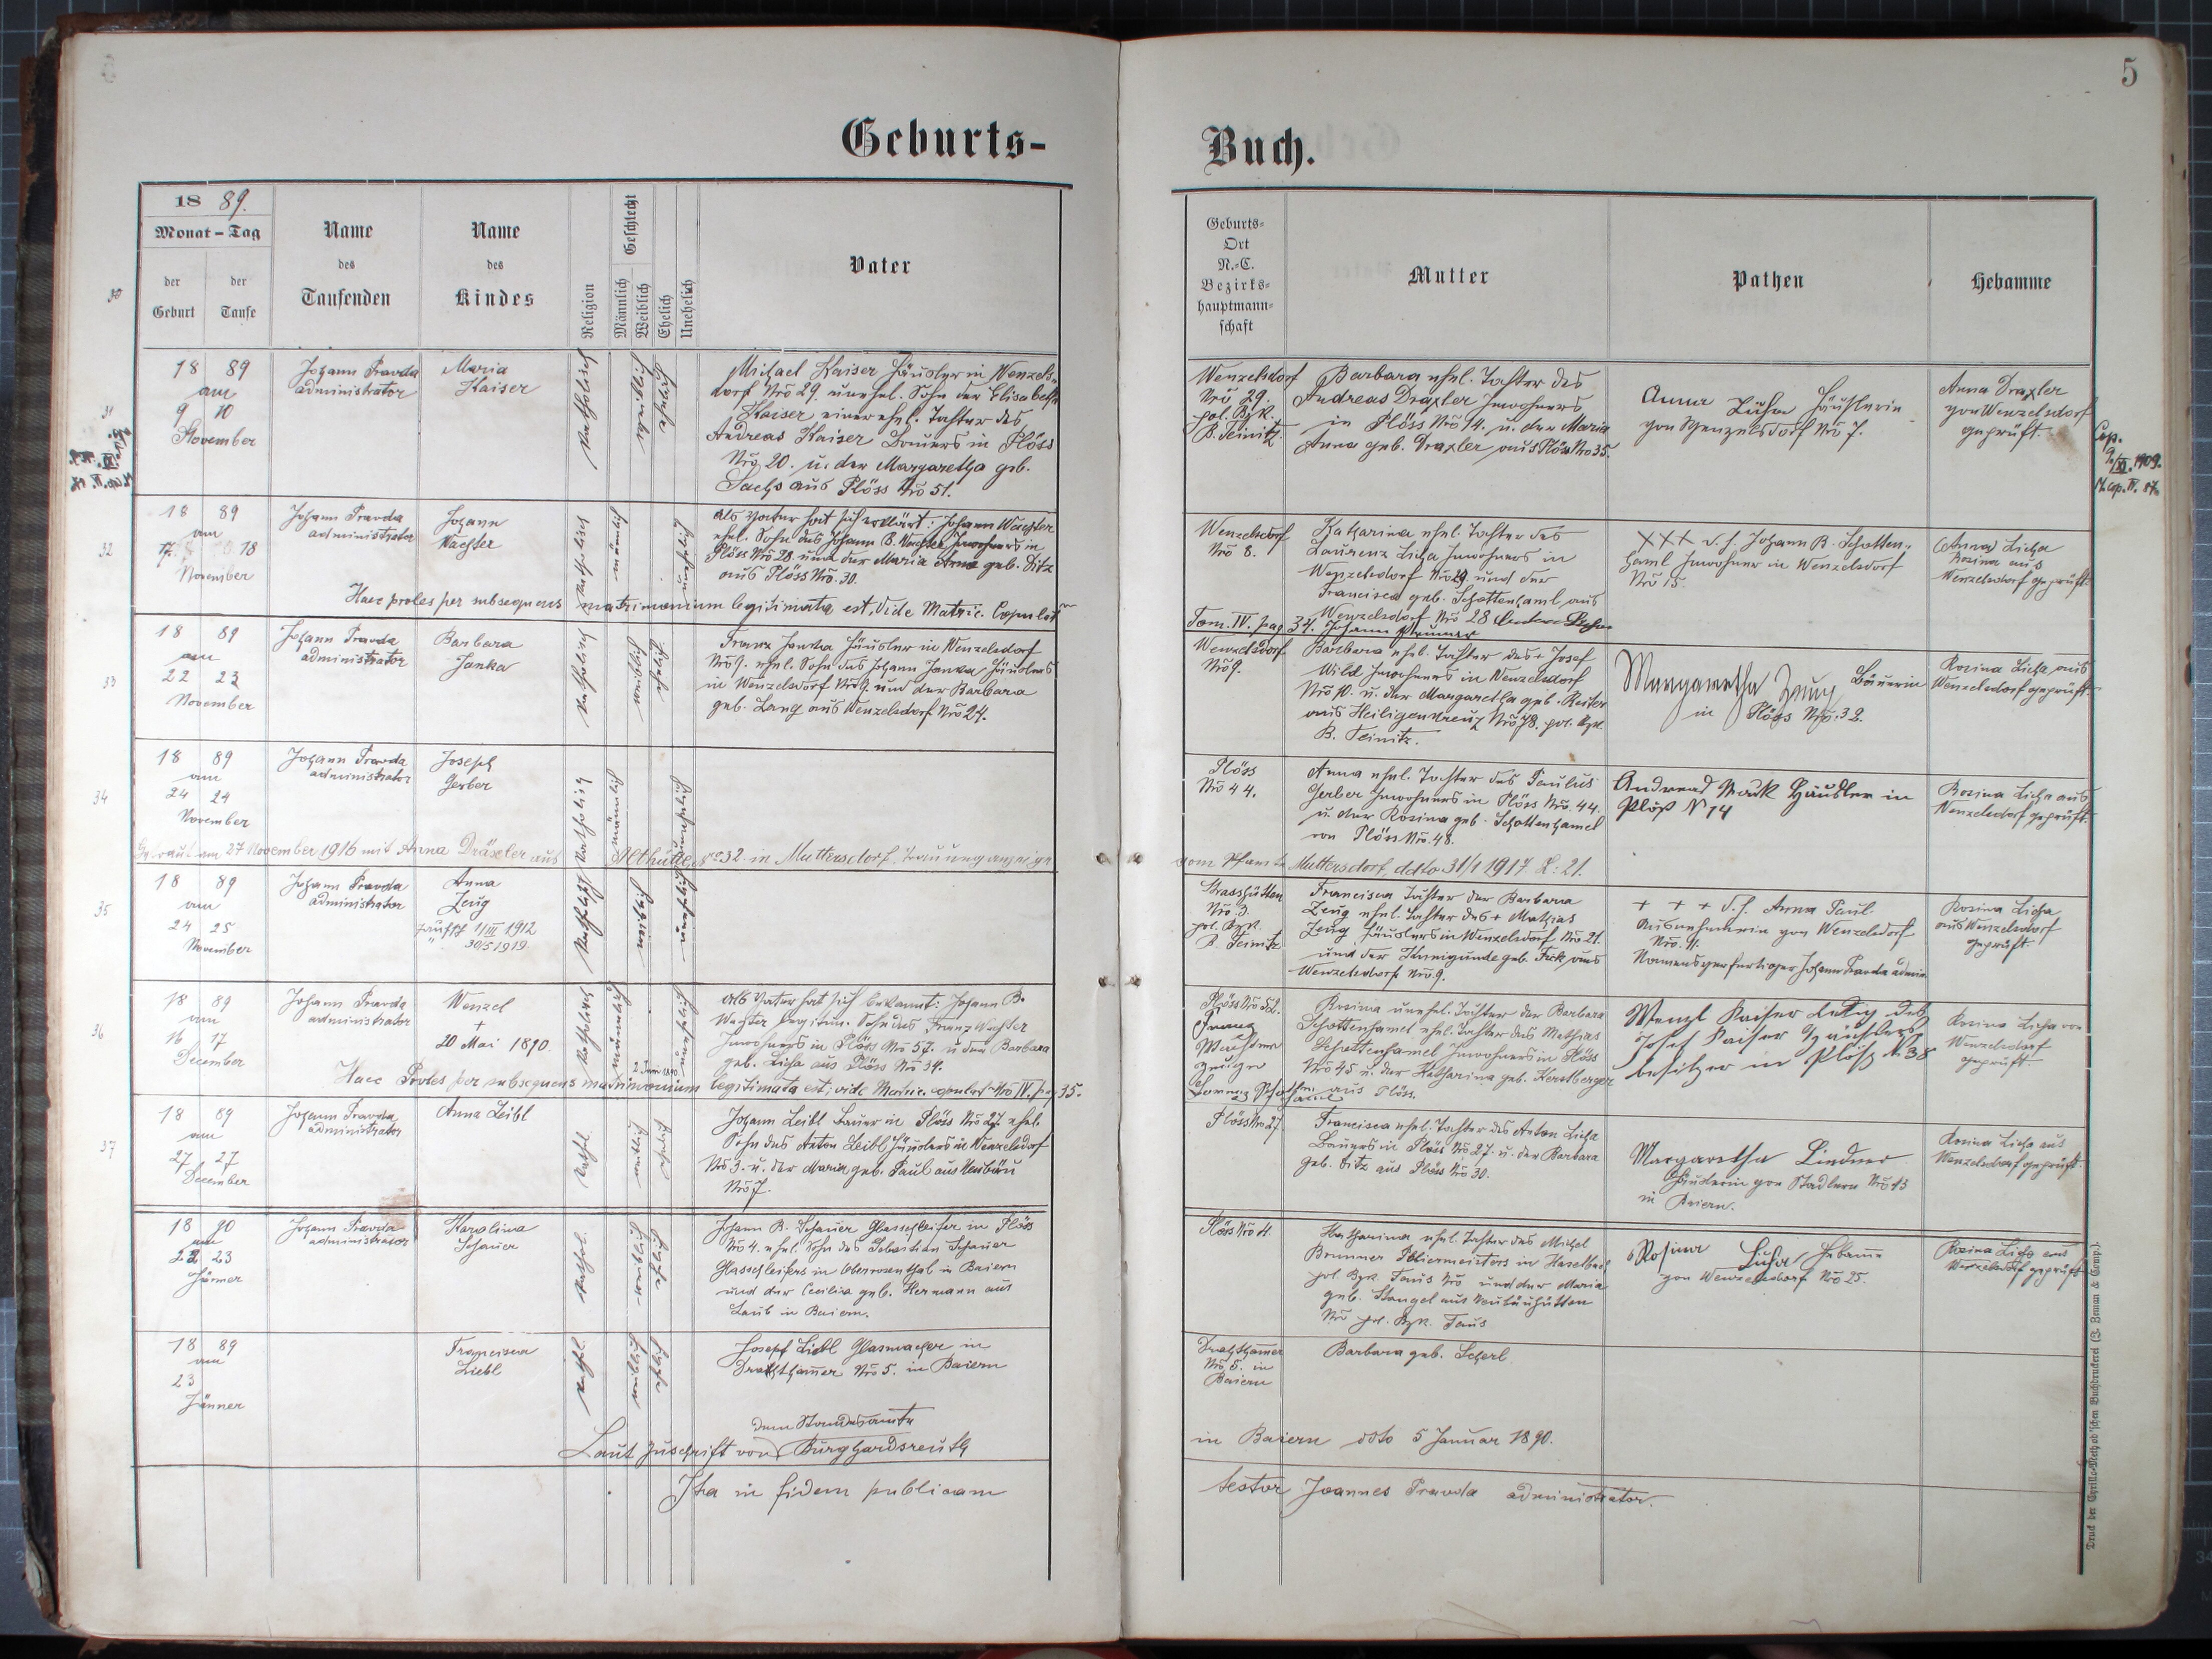 5
Geburts-
Buch.
18 89.
Monat - Tag
der Geburt
der Taufe
Name des Taufenden
Name des Kindes
Religion
Geschlecht
Männlich
Weiblich
Ehelich
Unehelich
Vater
Geburts-
Ort
N.-C.
Bezirks-
hauptmann-
schaft
Mutter
Pathen
Hebamme
31
18 89
am
9 10
November
Johann Pravda
administrator
Maria
Kaiser
katholisch
Michael Kaiser Häusler in Wenzels-
dorf Nro 29. unehel. Sohn der Elisabeth
Kaiser einer ehel. Tochter des
Andreas Kaiser Bauers in Plöss
Nro 20. u. der Margaretha geb.
Sachs aus Plöss Nro 51.
Wenzelsdorf
Nro 29.
pol. Bzk.
B. Teinitz.
Barbara ehel. Tochter des
Andreas Draxler Inwohners
in Plöss Nro 14. u. der Maria
Anna geb. Draxler aus Plöss Nro 35.
Anna Häuslerin
von Wenzelsdorf Nro 7.
Anna Draxler
von Wenzelsdorf
geprüft.
Cop.
9./XI. 1909.
32
18 89
am
17 18
November
Johann Pravda
administrator
Johann
Wachter
katholisch
männlich
unehelich
als Vater hat sich erklärt: Johann Wachter
ehel. Sohn des Johann B. Wachter Inwohners in
Plöss Nro 28. und der Maria Anna geb. Ditz
aus Plöss Nro. 30.
Haec proles per subsequens matrimonium legitimata est, Vide Matric. Copulat
Tom. IV. pag 34.
Wenzelsdorf
Nro 8.
Katharina ehel. Tochter des
Laurenz Licha Inwohners in
Wenzelsdorf und der
Francisca geb. Schottenhaml aus
Wenzelsdorf Nro 28
XXX d. h. Johann B. Schotten-
haml Inwohner in Wenzelsdorf
Nro 15.
(Anna) Licha
Rosina aus
Wenzelsdorf geprüft.
33
18 89
am
22 23
November
Johann Pravda
administrator
Barbara
Janka
katholisch
weiblich
eheli
Franz Janka Häusler in Wenzelsdorf
Nro 9. ehel. Sohn des Johann Janka Häuslers
in Wenzelsdorf Nro 9. und der Barbara
geb. Lang aus Wenzelsdorf Nro 24.
Wenzelsdorf
Nro 9.
Barbara ehel. Tochter des + Josef
Wild Inwohners in Wenzelsdorf
Nro 10. u. der Margaretha geb. Reiter
aus Heiligenkreuz Nro 78. pol. Bzk.
B. Teinitz.
Margaretha Bäuerin
in Plöss Nro. 32.
Rosina Licha aus
Wenzelsdorf geprüft.
34
18 89
am
24 24
November
Johann Pravda
administrator
Joseph
Gerber
katholisch
männlich
unehelich
Plöss
Nro 44.
Anna ehel. Tochter des Paulus
Gerber Inwohners in Plöss Nro. 44.
u. der Rosina geb. Schottenhamel
von Plöss Nro. 48.
Andreas Häusler in
Plöß N 14
Rosina Licha aus
Wenzelsdorf geprüft.
Getraut am 27 November 1916 mit Anna Dräxler aus Althütte No 32 in Muttersdorf, Trauungsanzeige
vom Pfarramte Muttersdorf, ddto 31/1 1917 Z: 21.
35
18 89
am
24 25
November
Johann Pravda
administrator
Anna
Zeug
1/III 1912
" 30/5 1919
Strasshütten
Nro. 3.
pol. Bzk.
B. Teinitz
Francisca Tochter der Barbara
Zeug ehel. Tochter des + Mathias
Zeug Häuslers in Wenzelsdorf Nro 21.
und der Kunigunde geb. aus
Wenzelsdorf Nro 9.
+ + + d. h. Anna Paul
Ausnehmerin von Wenzelsdorf
Nro. 11.
Namensgefertiger Johann Pravda admin
Rosina Licha
aus Wenzelsdorf
geprüft.
36
18 89
am
16 17
December
Johann Pravda
administrator
Wenzel
+
20 Mai 1890.
katholisch
männlich
unehelich
2. Juni 1890.
als Vater hat sich bekannt: Johann B.
Wachter legitim. Sohn des Franz Wachter
Inwohners in Plöss Nro 57. u. der Barbara
geb. Licha aus Plöss Nro 39.
Haec Proles per subsequens matrimonium legitimata est; vide Matric. copulat Nro IV. pag 35.
Rosina unehel. Tochter der Barbara
Schottenhamel ehel. Tochter des Mathias
Schottenhamel Inwohners in Plöss
Nro 45 u. der Katharina geb. Herrberger
aus Plöss.
Wenzl Kaiser Ledig des
Josef Kaiser
besitzer in Plöß N 38
Rosina Licha von
Wenzelsdorf
geprüft.
37
18 89
am
27 27
December
Johann Pravda
administrator
Anna Leibl
kathl.
weiblich
Johann Leibl Bauer in Plöss Nro 27. ehel.
Sohn des Anton Leibl Häuslers in Wenzelsdorf
Nro 3. u. der Maria geb. Paul aus Neubäu
Nro 7.
Plöss Nro 27.
Francisca ehel. Tochter des Anton Licha
Bauers in Plöss Nro 27. u. der Barbara
geb. Ditz aus Plöss Nro 30.
Margaretha Lindner
Häuslerin von Stadlern Nro 13
in Baiern.
Rosina Licha aus
Wenzelsdorf geprüft.
18 90
am
22 23
Jänner
Johann Pravda
administrator
Karolina
Schauer
kathol.
weiblich
Johann B. Schauer Glasschleifer in Plöss
Nro 4. ehel. Sohn des Sebastian Schauer
Glasschleifers in Oberrosenthal in Baiern
und der Cecilia geb. Hermann aus
Laub in Baiern.
Plöss Nro 4.
Katharina ehel. Tochter des Michel
Brunner Poliermeisters in Haselbach
pol. Bzk. Taus Nro und der Maria
geb. Stangel aus
Nro pol. Bzk. Taus
Rosina Licha Hebame
von Wenzelsdorf Nro 25.
Rosina Licha aus
Wenzelsdorf geprüft
18 89
am
23
Jänner
Francisca
Liebl
kathl.
weiblich
Joseph Liebl Glasmacher in
Drahthamer Nro 5. in Baiern
Drahthamer
Nro. 5. in
Baiern
Barbara geb. Scherl
dem Standesamte
Laut Zuschrift von Burghardsreuth
in Baiern ddto 5 Januar 1890.
Ita in fidem publicam
testor Joannes Pravda administrator.
Druck der Cyrillo-Method'schen Buchdruckerei (J. Zeman & Comp.).